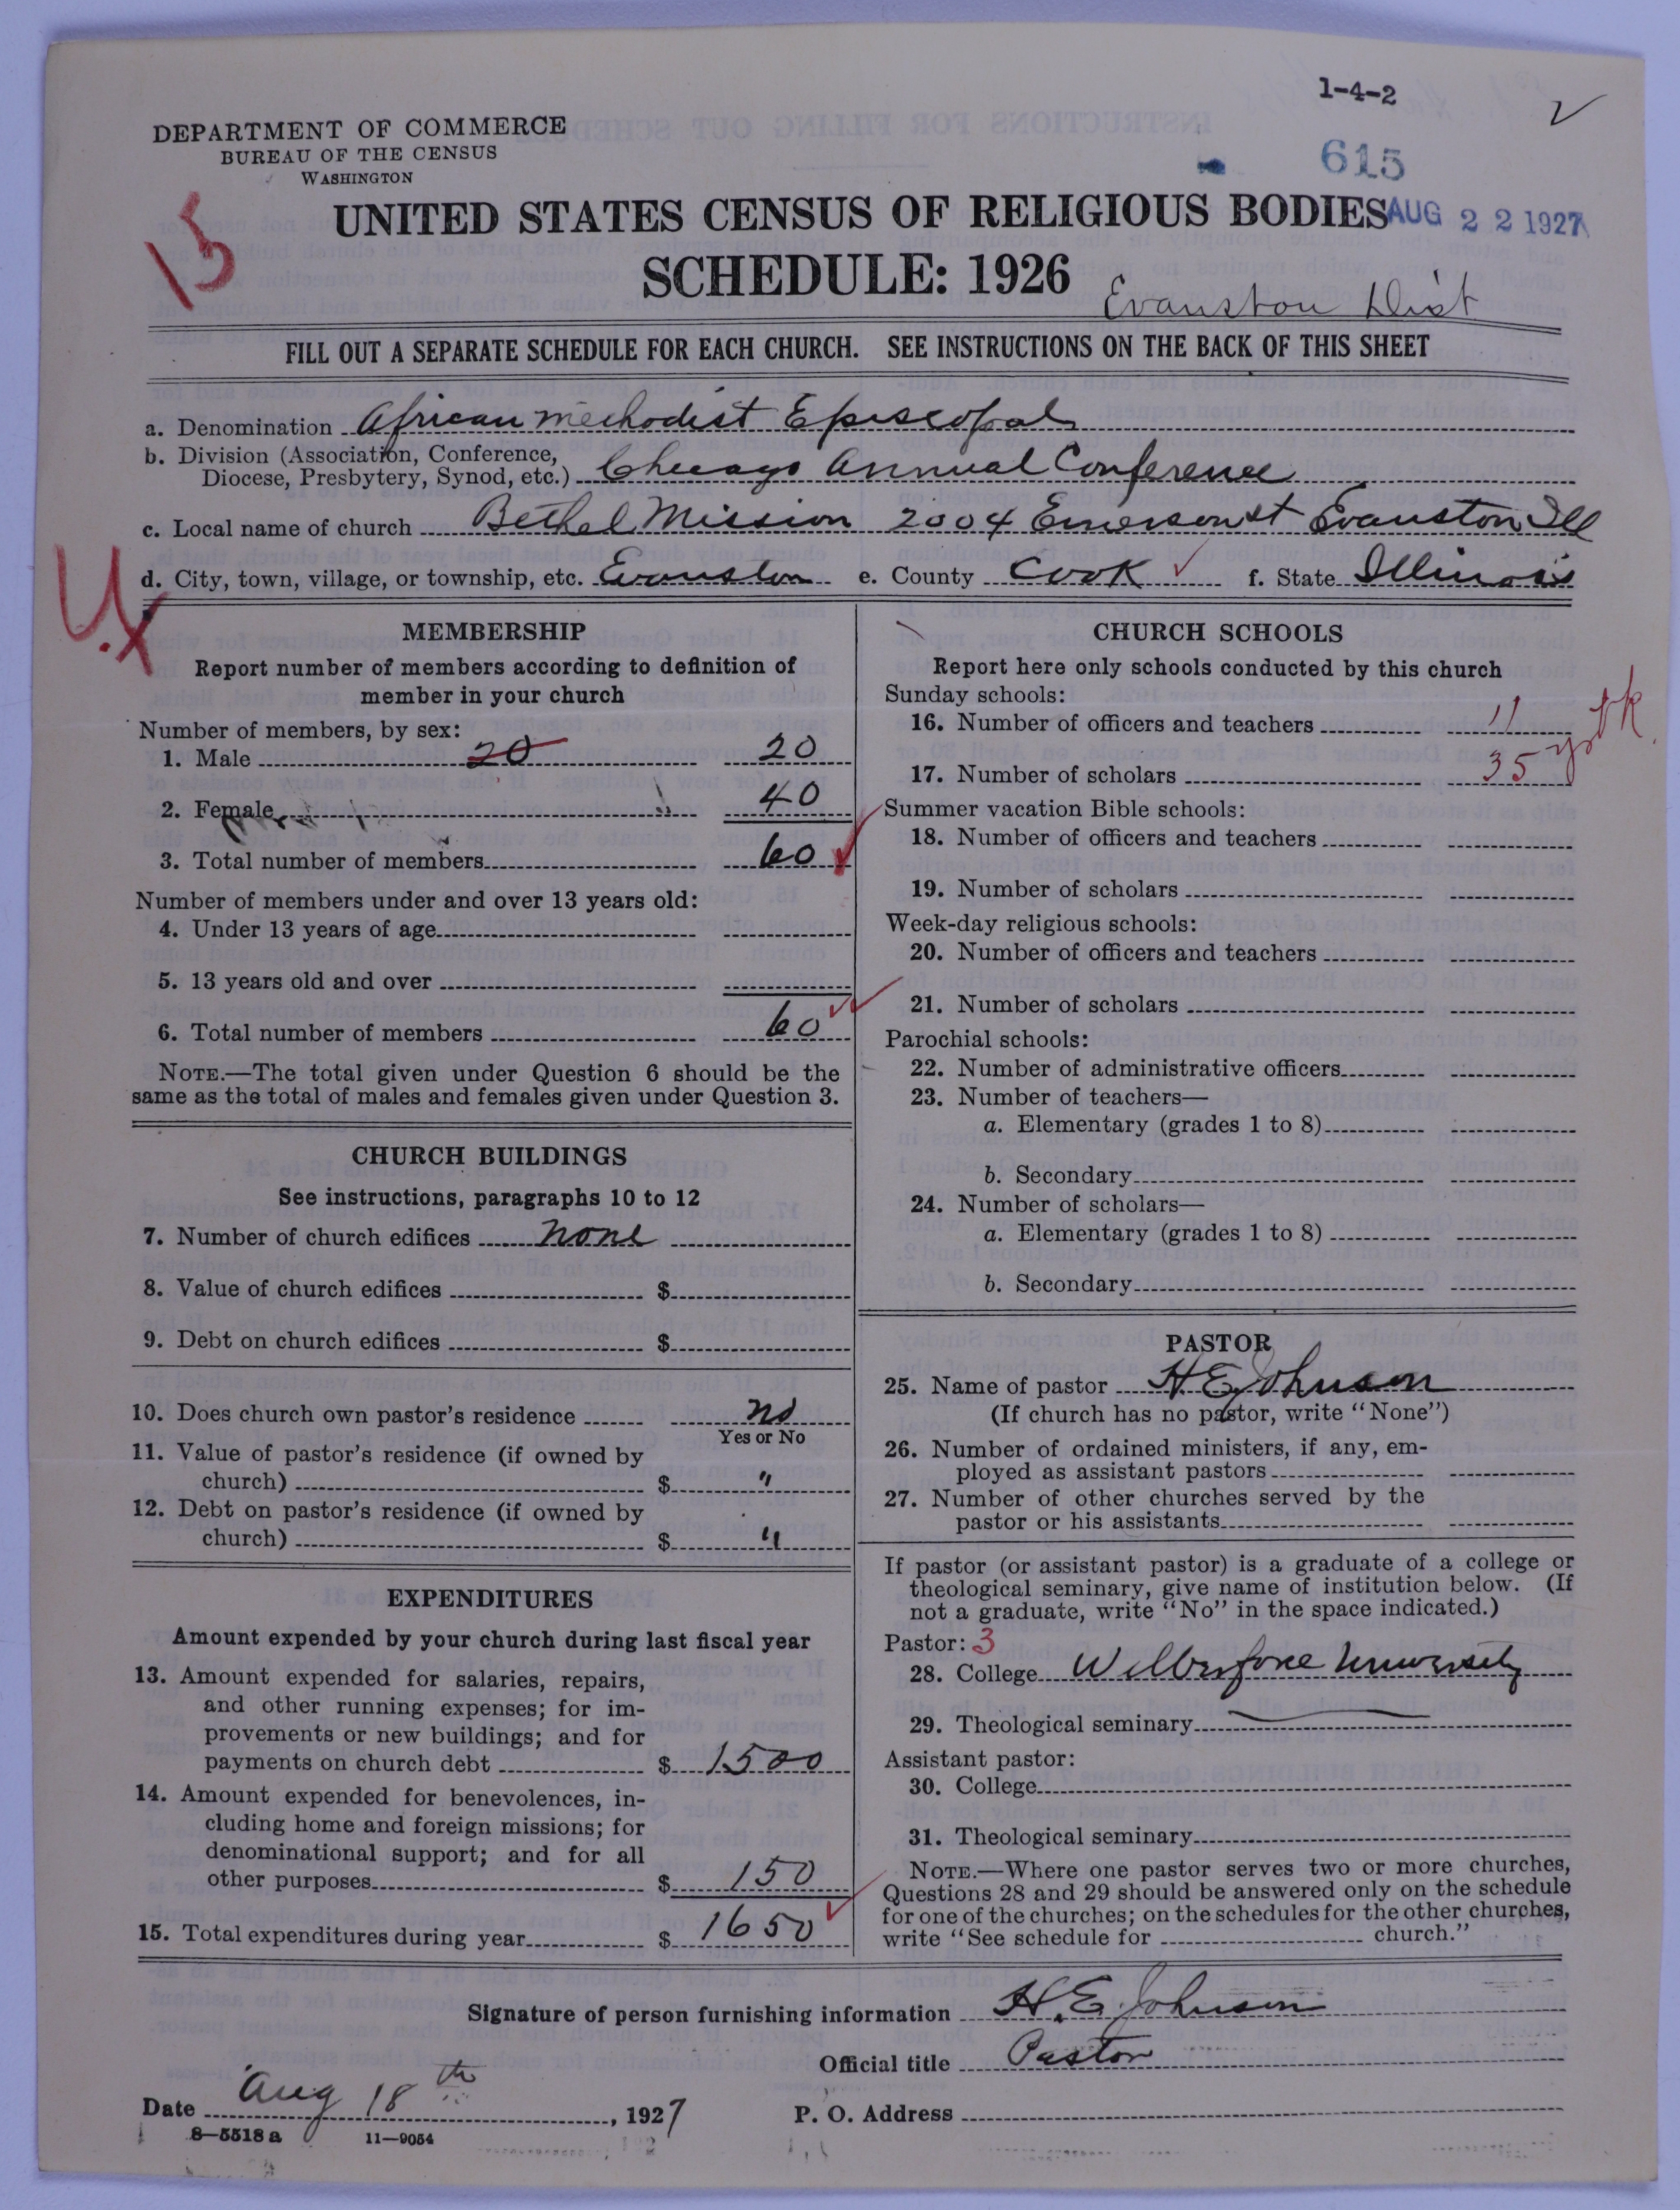 1-4-2
DEPARTMENT OF COMMERCE
BUREAU OF THE CENSUS
WASHINGTON
615
15
UNITED STATES CENSUS OF RELIGIOUS BODIES
AUG 22 1927
SCHEDULE: 1926
Evanston Dist
FILL OUT A SEPARATE SCHEDULE FOR EACH CHURCH. SEE INSTRUCTIONS ON THE BACK OF THIS SHEET
a. Denomination African Methodist Episcopal
b. Division (Association, Conference,
Diocese, Presbytery, Synod, etc.) Chicago Annual Conference
c. Local name of church Bethel Mission 2004 Emerson st Evanston Ill
d. City, town, village, or township, etc. Evanston e. County Cook f. State Illinois
MEMBERSHIP
Report number of members according to definition of
member in your church
Number of members, by sex:
1. Male 20 20
2. Female 40
3. Total number of members 60
Number of members under and over 13 years old:
4. Under 13 years of age
5. 13 years old and over
6. Total number of members 60
NOTE.—The total given under Question 6 should be the
same as the total of males and females given under Question 3.
CHURCH BUILDINGS
See instructions, paragraphs 10 to 12
7. Number of church edifices none
8. Value of church edifices $
9. Debt on church edifices $
10. Does church own pastor's residence no
Yes or No
11. Value of pastor's residence (if owned by
church) $ "
12. Debt on pastor's residence (if owned by
church) $ "
EXPENDITURES
Amount expended by your church during last fiscal year
13. Amount expended for salaries, repairs,
and other running expenses; for im-
provements or new buildings; and for
payments on church debt $ 1500
14. Amount expended for benevolences, in-
cluding home and foreign missions; for
denominational support; and for all
other purposes $ 150
15. Total expenditures during year $ 1650
CHURCH SCHOOLS
Report here only schools conducted by this church
Sunday schools:
16. Number of officers and teachers 11
17. Number of scholars 35
Summer vacation Bible schools:
18. Number of officers and teachers
19. Number of scholars
Week-day religious schools:
20. Number of officers and teachers
21. Number of scholars
Parochial schools:
22. Number of administrative officers
23. Number of teachers—
a. Elementary (grades 1 to 8)
b. Secondary
24. Number of scholars—
a. Elementary (grades 1 to 8)
b. Secondary
PASTOR
25. Name of pastor H E Johnson
(If church has no pastor, write "None")
26. Number of ordained ministers, if any, em-
ployed as assistant pastors
27. Number of other churches served by the
pastor or his assistants
If pastor (or assistant pastor) is a graduate of a college or
theological seminary, give name of institution below. (If
not a graduate, write "No" in the space indicated.)
Pastor: 3
28. College Wilberforce University
29. Theological seminary
Assistant pastor:
30. College
31. Theological seminary
NOTE.—Where one pastor serves two or more churches,
Questions 28 and 29 should be answered only on the schedule
for one of the churches; on the schedules for the other churches,
write "See schedule for church."
Signature of person furnishing information H. E. Johnson
Official title Pastor
Date Aug 18th, 1927 P. O. Address
8—5518 a 11—9054